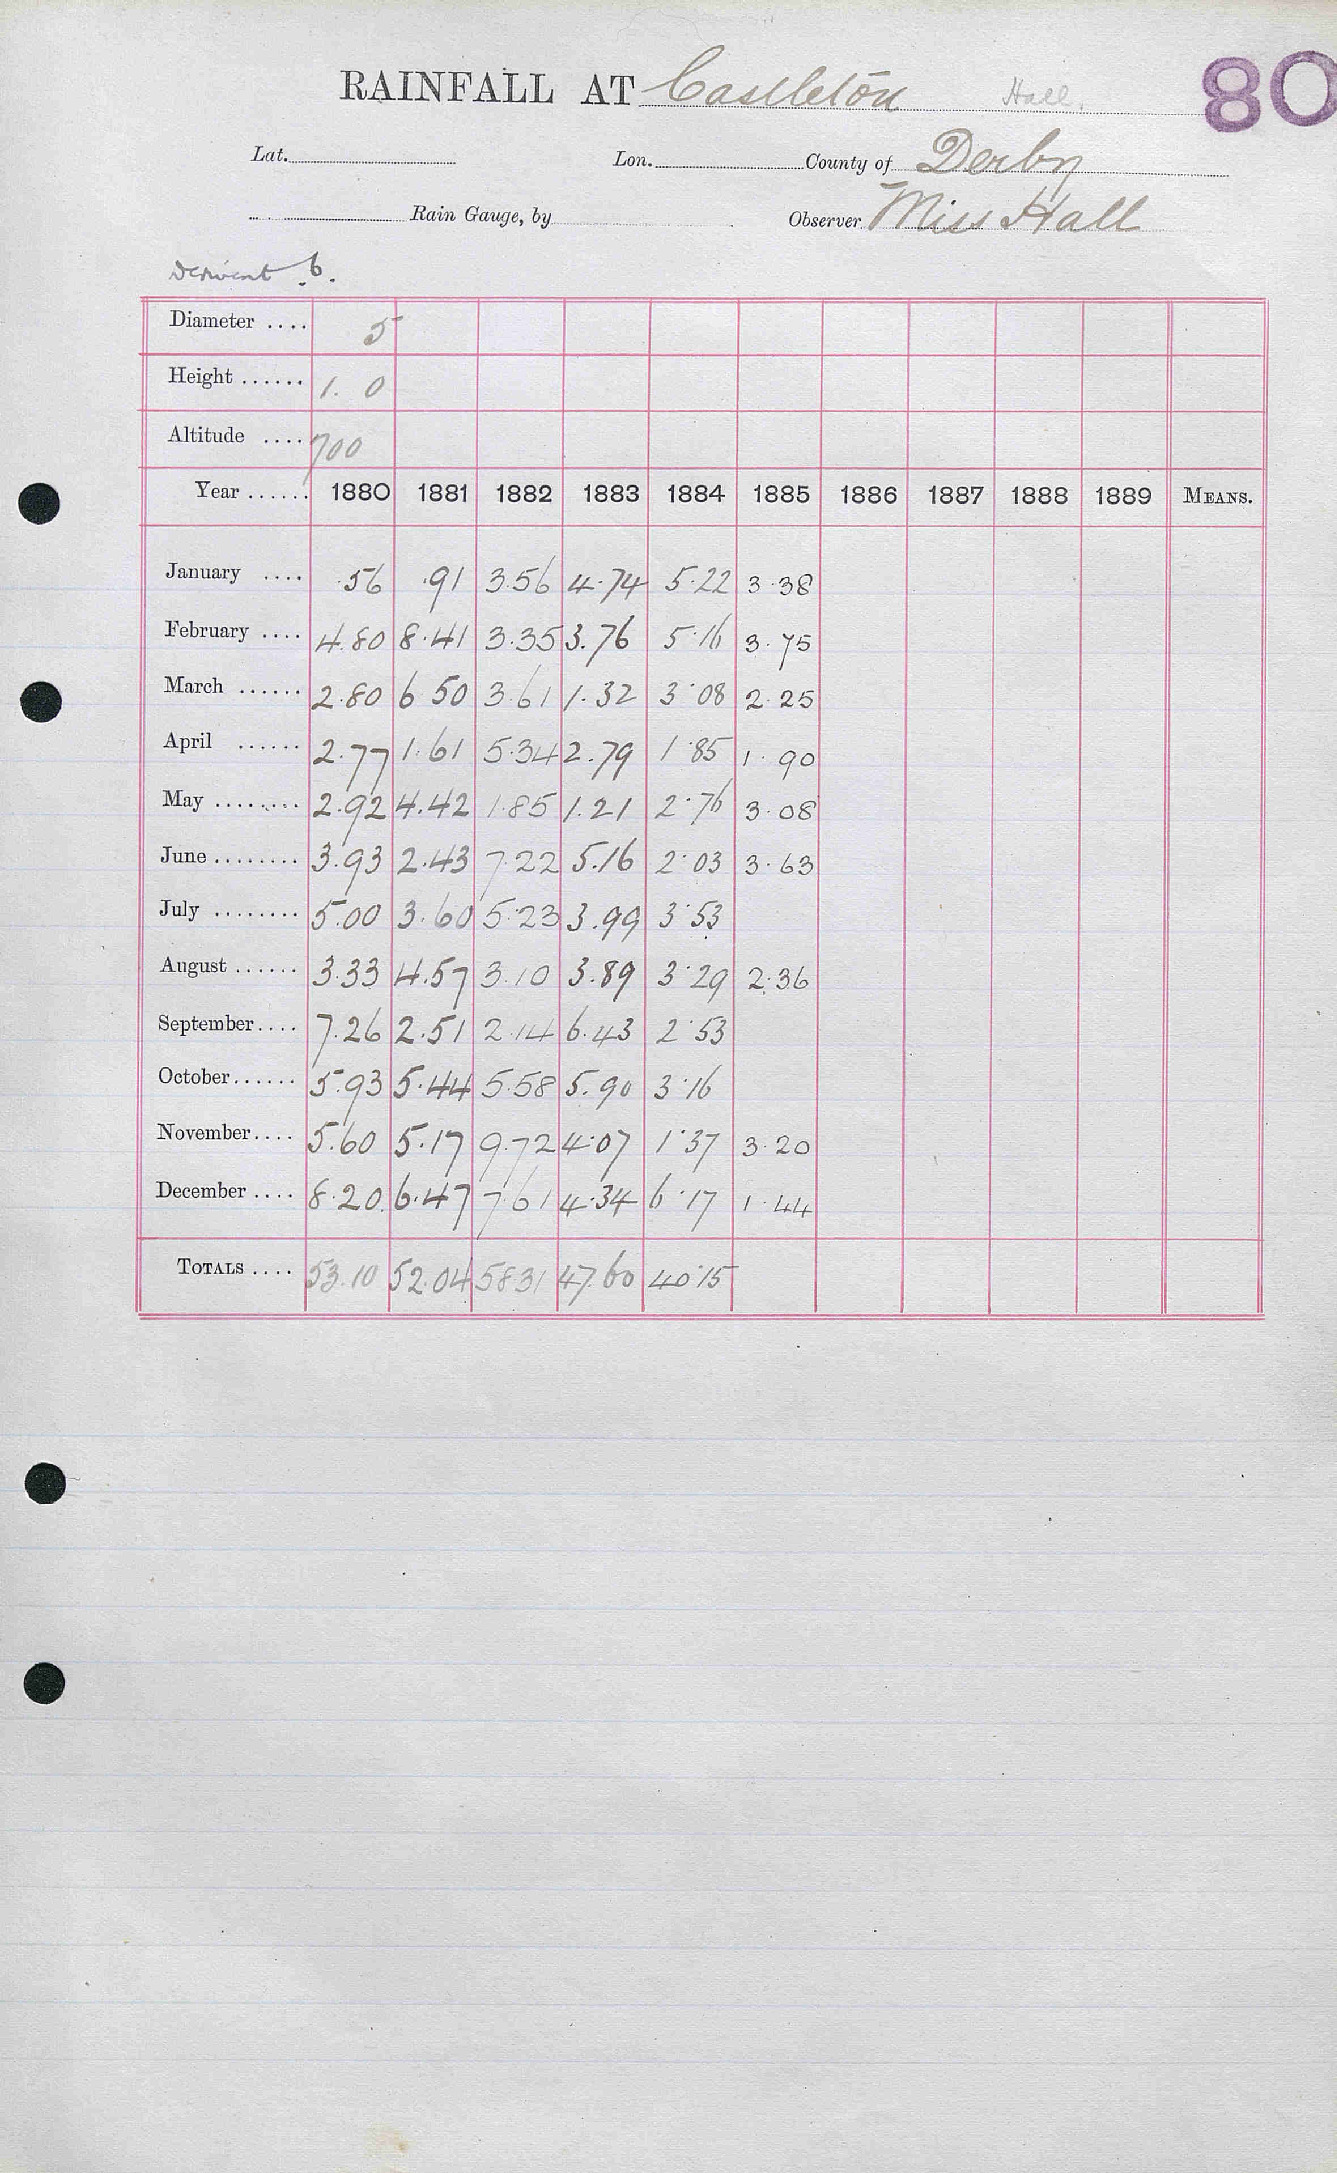 RAINFALL AT Castleton Hall. 80
Lat. Lon. County of Derby
Rain Gauge, by Observer Miss Hall
Derwent 6.
Diameter .... 5
Height ...... 1. 0
Altitude .... 700
Year ...... 1880 1881 1882 1883 1884 1885 1886 1887 1888 1889 MEANS.
January .... .56 .91 3.56 4.74 5.22 3.38
February .... 4.80 8.41 3.35 3.76 5.16 3.75
March ...... 2.80 6 50 3.61 1.32 3.08 2.25
April ...... 2.77 1.61 5.34 2.79 1.85 1.90
May ........ 2.92 4.42 1.85 1.21 2.76 3.08
June ........ 3.93 2.43 7.22 5.16 2.03 3.63
July ........ 5.00 3.60 5.23 3.99 3.53
August ...... 3.33 4.57 3.10 3.89 3.29 2.36
September .... 7.26 2.51 2.14 6.43 2.53
October ...... 5.93 5.44 5.58 5.90 3.16
November .... 5.60 5.17 9.72 4.07 1.37 3.20
December .... 8.20 6.47 7.61 4.34 6.17 1.44
TOTALS .... 53.10 52.04 58.31 47.60 40.15